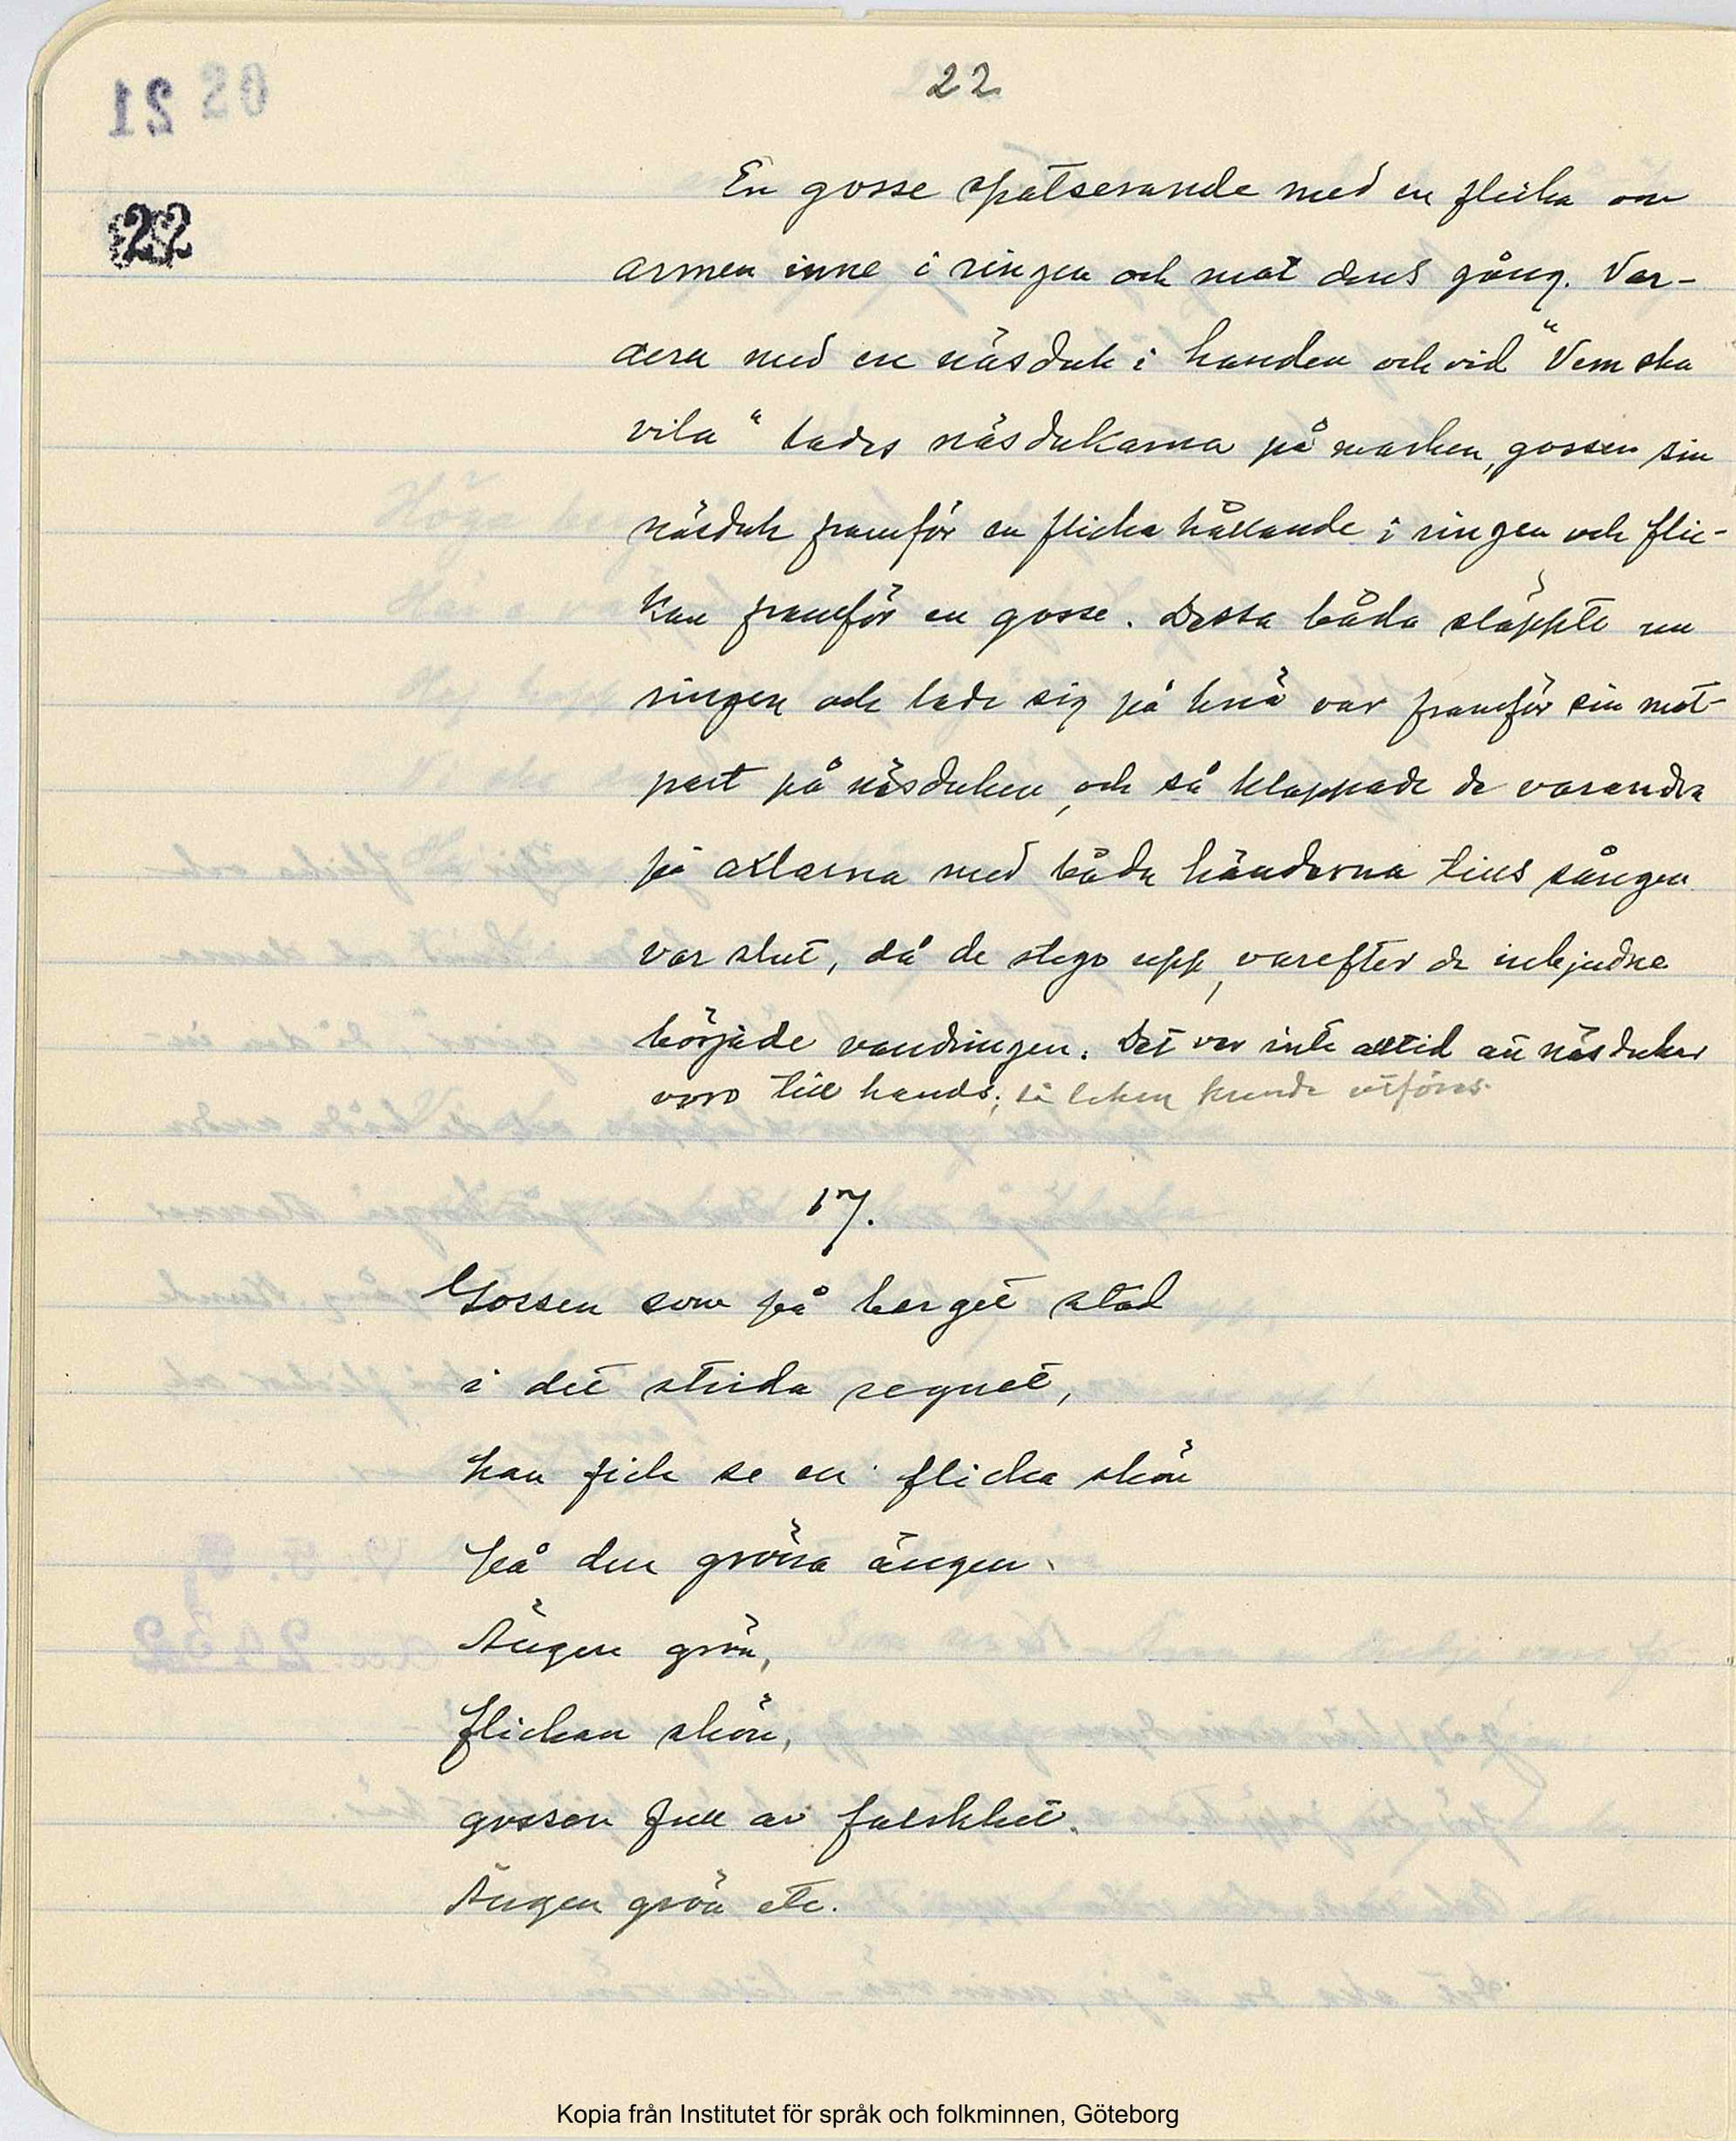 22
22
En gosse spatserande med en flicka om
armen inne i ringen och mot dens gång. Var-
dera med en näsduk i handen och vid "Vem ska
vila" lades näsdukarna på marken, gossen sin
näsduk framför en flicka hållande i ringen och flic-
kan framför en gosse. Dessa båda släppte nu
ringen och lade sig på knä var framför sin mot-
part på näsduken, och så klappade de varandra
på axlarna med båda händerna tills sången
var slut, då de stego upp, varefter de inbjudne
började vandringen. Det var inte alltid att näsdukar
voro till hands, så leken kunde utföras.
17.
Gossen som på berget stod
i det strida regnet,
han fick se en flicka skön
på den gröna ängen.
Ängen grön,
flickan skön,
gossen full av falskhet.
Ängen grön etc.
Kopia från Institutet för språk och folkminnen, Göteborg